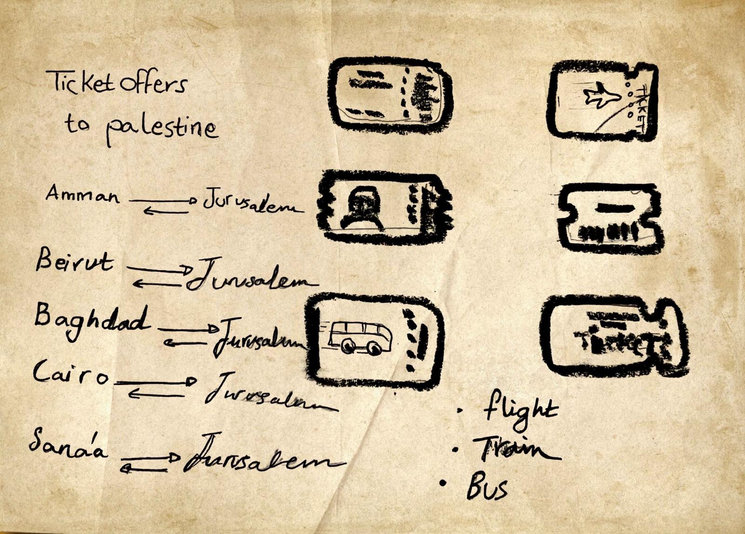 Ticket offers
to palestine
Amman Jurusalem
Beirut Jurusalem
Baghdad Jurusalem
Cairo Jurusalem
Sanáa Jurusalem
TICKET
Ticket
• flight
• Train
• Bus